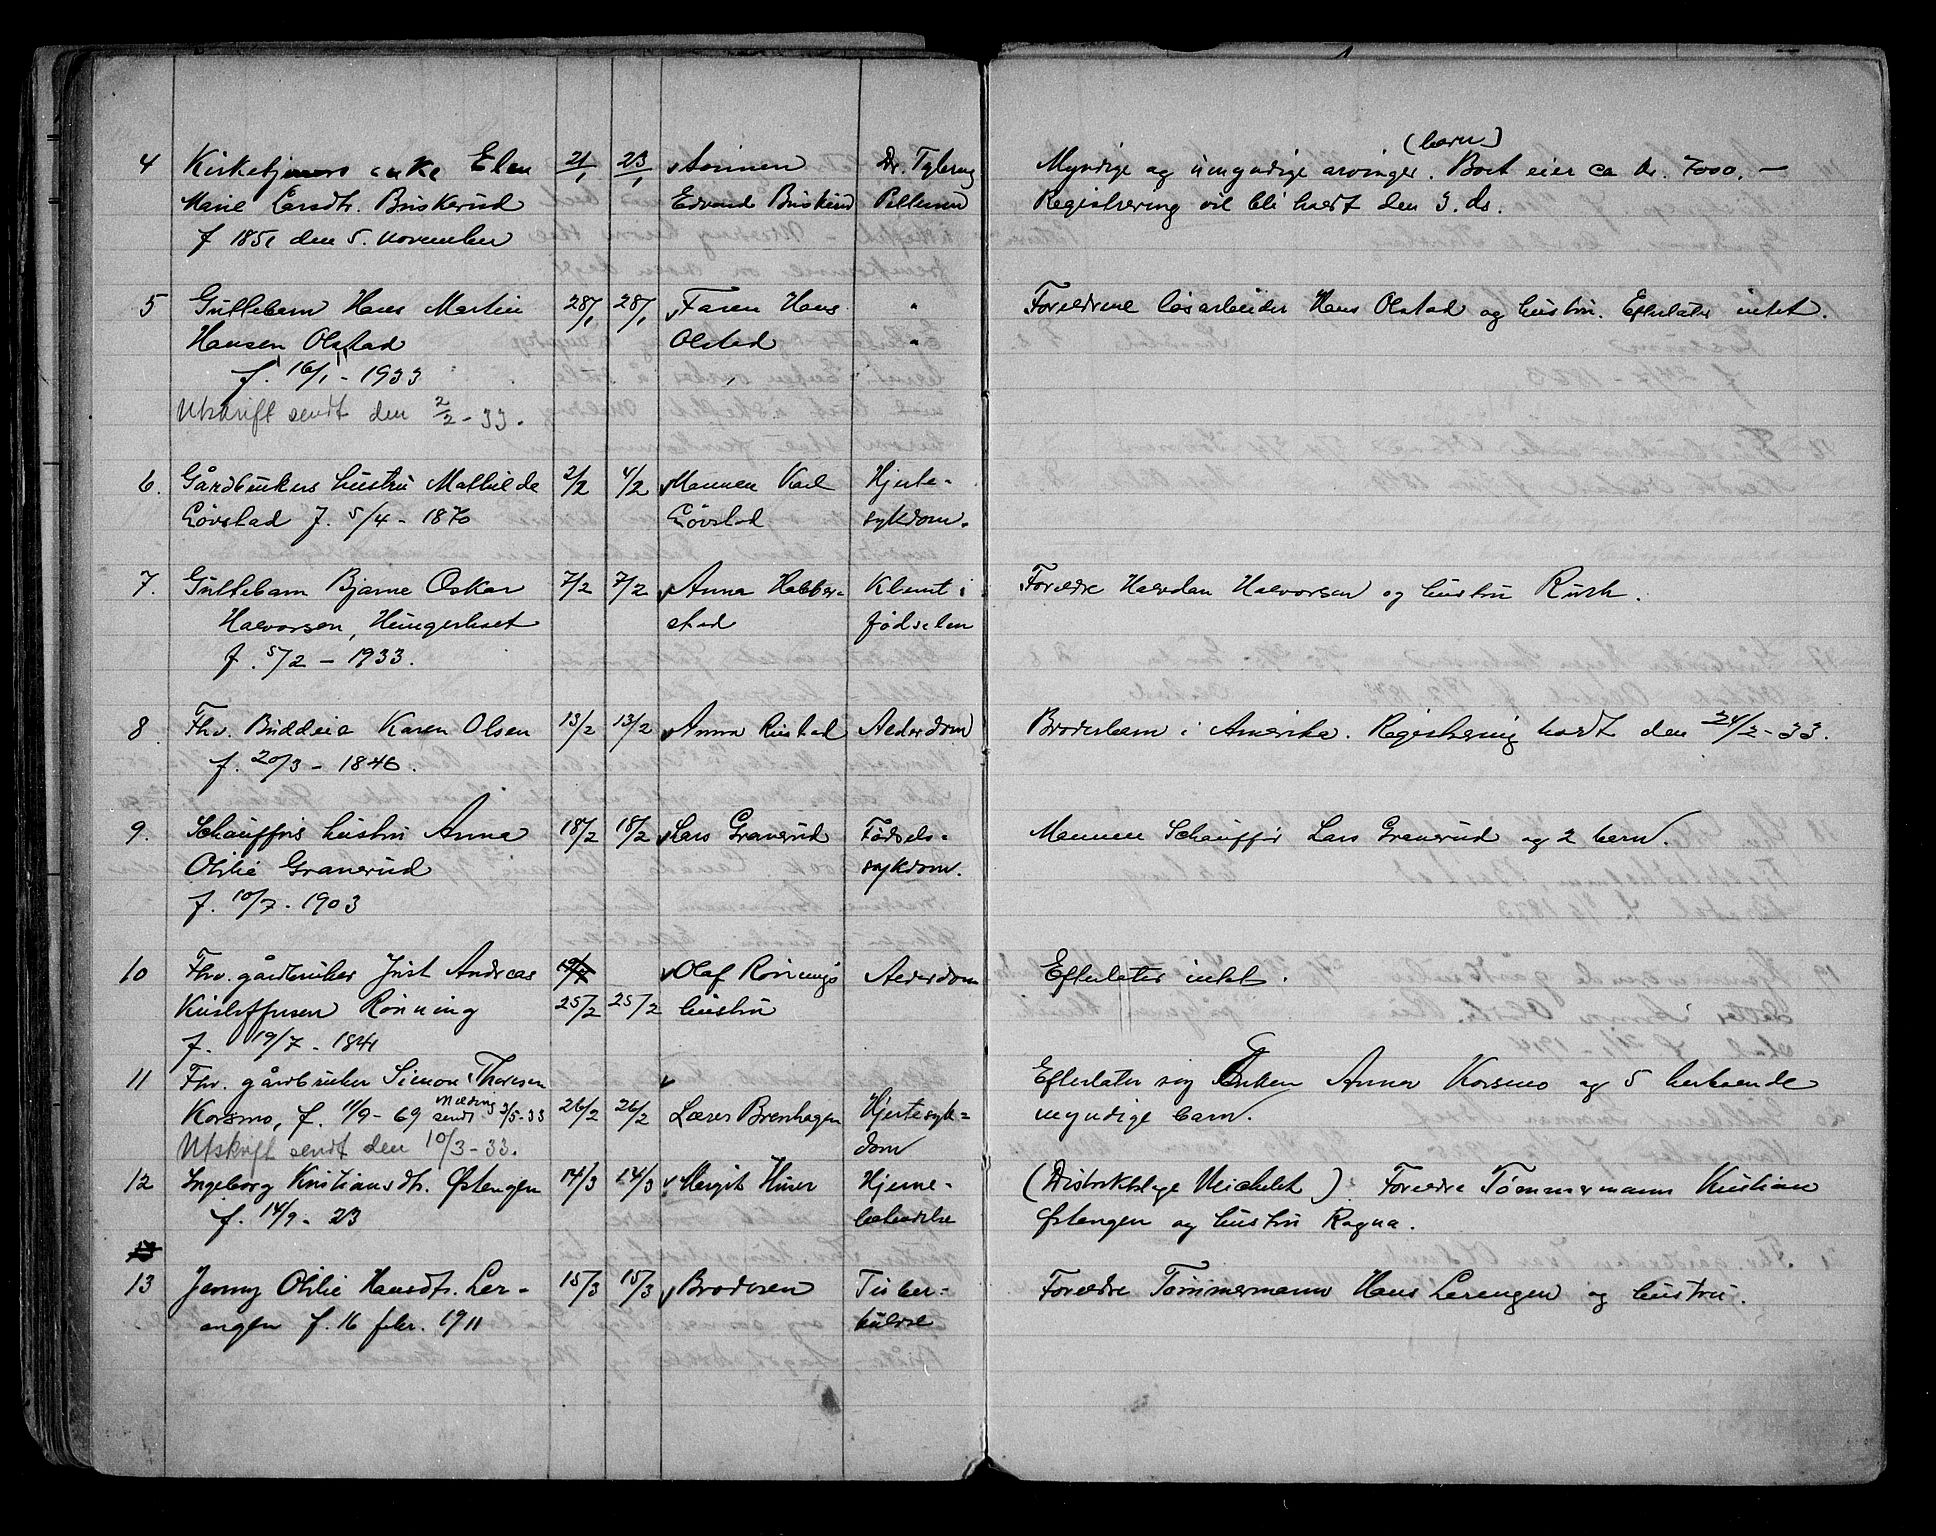 4 Kirketjeners enke Elen 21/1 23/1 Sönnen Dr. (barn)
Marie Larsdtr. Briskerud Edvard Briskerud Myndige og umyndige arvinger. Boet eier ca kr. 7000.-
f 1851 den 5. november Registrering vil bli holdt den 3. ds.
5 Guttebarn Hans Martin 28/1 28/1 Faren Hans " Foreldrene løsarbeider Hans Olstad og hustru. Efterlater intet.
Hansen Olstad Olstad "
f. 16/1 - 1933
Utskrift sendt den 2/2 - 33.
6. Gårdbrukers hustru Mathilde 2/2 4/2 Mannen Karl Hjerte-
Løvstad f. 5/4 - 1870 Løvstad sykdom.
7. Guttebarn Bjarne Oskar 7/2 7/2 Anna Habber- Klemt i Foreldre Halvdan Halvorsen og hustru Ruth.
Halvorsen, Hungerholt stad fødselen
f. 5/2 - 1933.
8. Fhv. Buddeie Karen Olsen 13/2 13/2 Anna Rustad Alderdom Broderbarn i Amerika. Registrering holdt den 24/2 - 33.
f. 20/3 - 1846.
9. Schaufførs hustru Anna 18/2 18/2 Lars Granerud Fødsels- Mannen Schauffør Lars Granerud og 2 barn.
Otilie Granerud sykdom.
f. 10/7 - 1903
10 Fhv. gårdbruker Just Andreas Olaf Rönnings Alderdom Efterlater intet.
Kristoffersen Rönning 25/2 25/2 hustru
f. 19/7 - 1841
11 Fhv. gårdbruker Simon Thoresen Efterlater sig Enken Anna Korsmo og 5 herboende
Korsmo, f. 11/9 - 69 melding sendt 3/5-33 26/2 26/2 Lærer Brenhagen Hjertesyk- myndige barn.
Utskrift sendt den 10/3 - 33. dom
12 Ingeborg Kristiansdtr. Østengen 14/3 14/3 Margit Huser Hjerne- (Distriktslege Michelet). Foreldre Tømmermann Kristian
f. 14/9 - 23 betendelse Østengen og hustru Ragna.
13 Jenny Otilie Hansdtr. Ler- 15/3 15/3 Broderen Tuber- Foreldre Tømmermann Hans Lerengen og hustru.
engen f. 16 febr. 1911 kulose